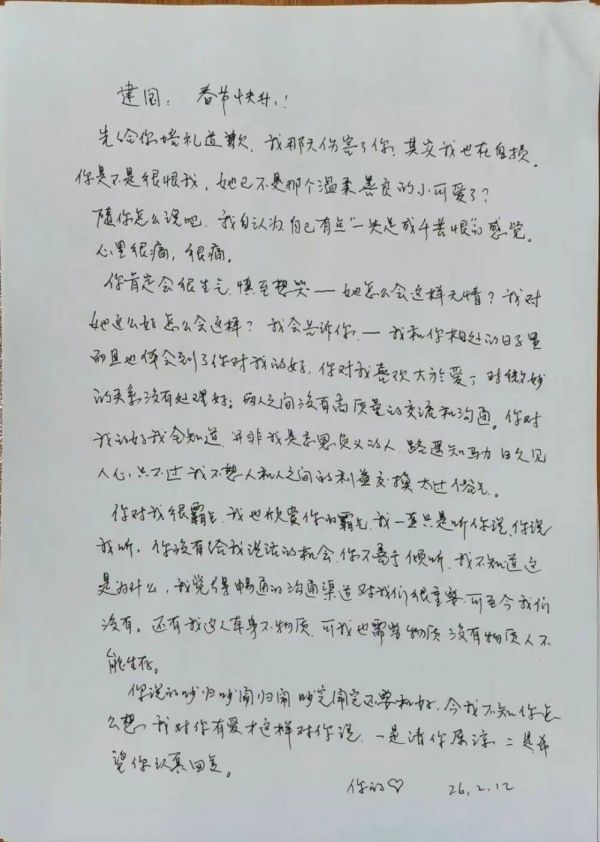 建国：春节快乐！
先给你赔礼道歉，我那天伤害了你，其实我也在自损。
你是不是很恨我，她已不是那个温柔善良的小可爱了？
随你怎么说吧，我自认为自己有点“一失足成千苦恨”的感觉。
心里很痛，很痛。
你肯定会很生气，慎至想哭——她怎么会这样无情？我对
她这么好怎么会这样？我会告诉你，——我和你相处的日子里
而且也体会到了你对我的好，你对我喜欢大于爱，对微妙
的关系没有处理好；两人之间没有高质量的交流和沟通。你对
我的好我全知道，并非我是忘恩负义的人，路遥知马力日久见
人心，只不过我不想人和人之间的利益交换太过俗气。
你对我很霸气，我也欣赏你的霸气，我一直只是听你说，你说
我听，你没有给我说话的机会，你不善于倾听，我不知道这
是为什么，我觉得畅通的沟通渠道对我们很重要，可至今我们
没有。还有我这人本身不物质，可我也需要物质，没有物质人不
能生存。
你说的吵归吵闹归闹吵完闹完还要和好，今我不知你怎
么想，我对你有爱才这样对你说，一是请你原谅，二是希
望你认真回复。
你的♡ 26.2.12